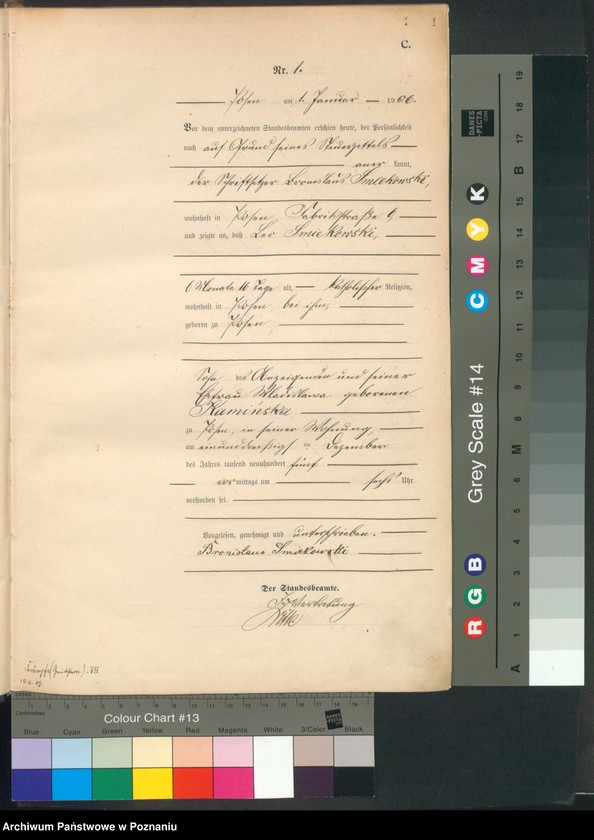 1
C.
Nr. 1.
Posen am 1. Januar 1906.
Vor dem unterzeichneten Standesbeamten erschien heute, der Persönlichkeit
nach auf Grund seines Steuerzettels
aner kannt,
der Schriftsetzer Bronislaus Smiekowski,
wohnhaft in Posen, Fabrikstraße
und zeigte an, daß Leo Smiekowski,
6 Monate 16 Tage alt, katholischer Religion,
wohnhaft in Posen, bei ihm,
geboren zu Posen
Sohn des Anzeigenden und seiner
Ehefrau Wladislawa geborenen
Kamińska
zu Posen, in seiner Wohnung,
am einunddreißigsten Dezember
des Jahres tausend neunhundert fünf
vor mittags um sechs Uhr
verstorben sei.
Vorgelesen, genehmigt und unterschrieben.
Bronislaus Smiekowski
Der Standesbeamte.
In Vertretung
Grey Scale #14
C M Y K
R G B
A 1 2 3 4 5 6 M 8 9 10 11 12 13 14 15 B 17 18 19
DANES-PICTA.COM
Centimetres
Colour Chart #13
Blue Cyan Green Yellow Red Magenta White 3/Color Black
Archiwum Państwowe w Poznaniu